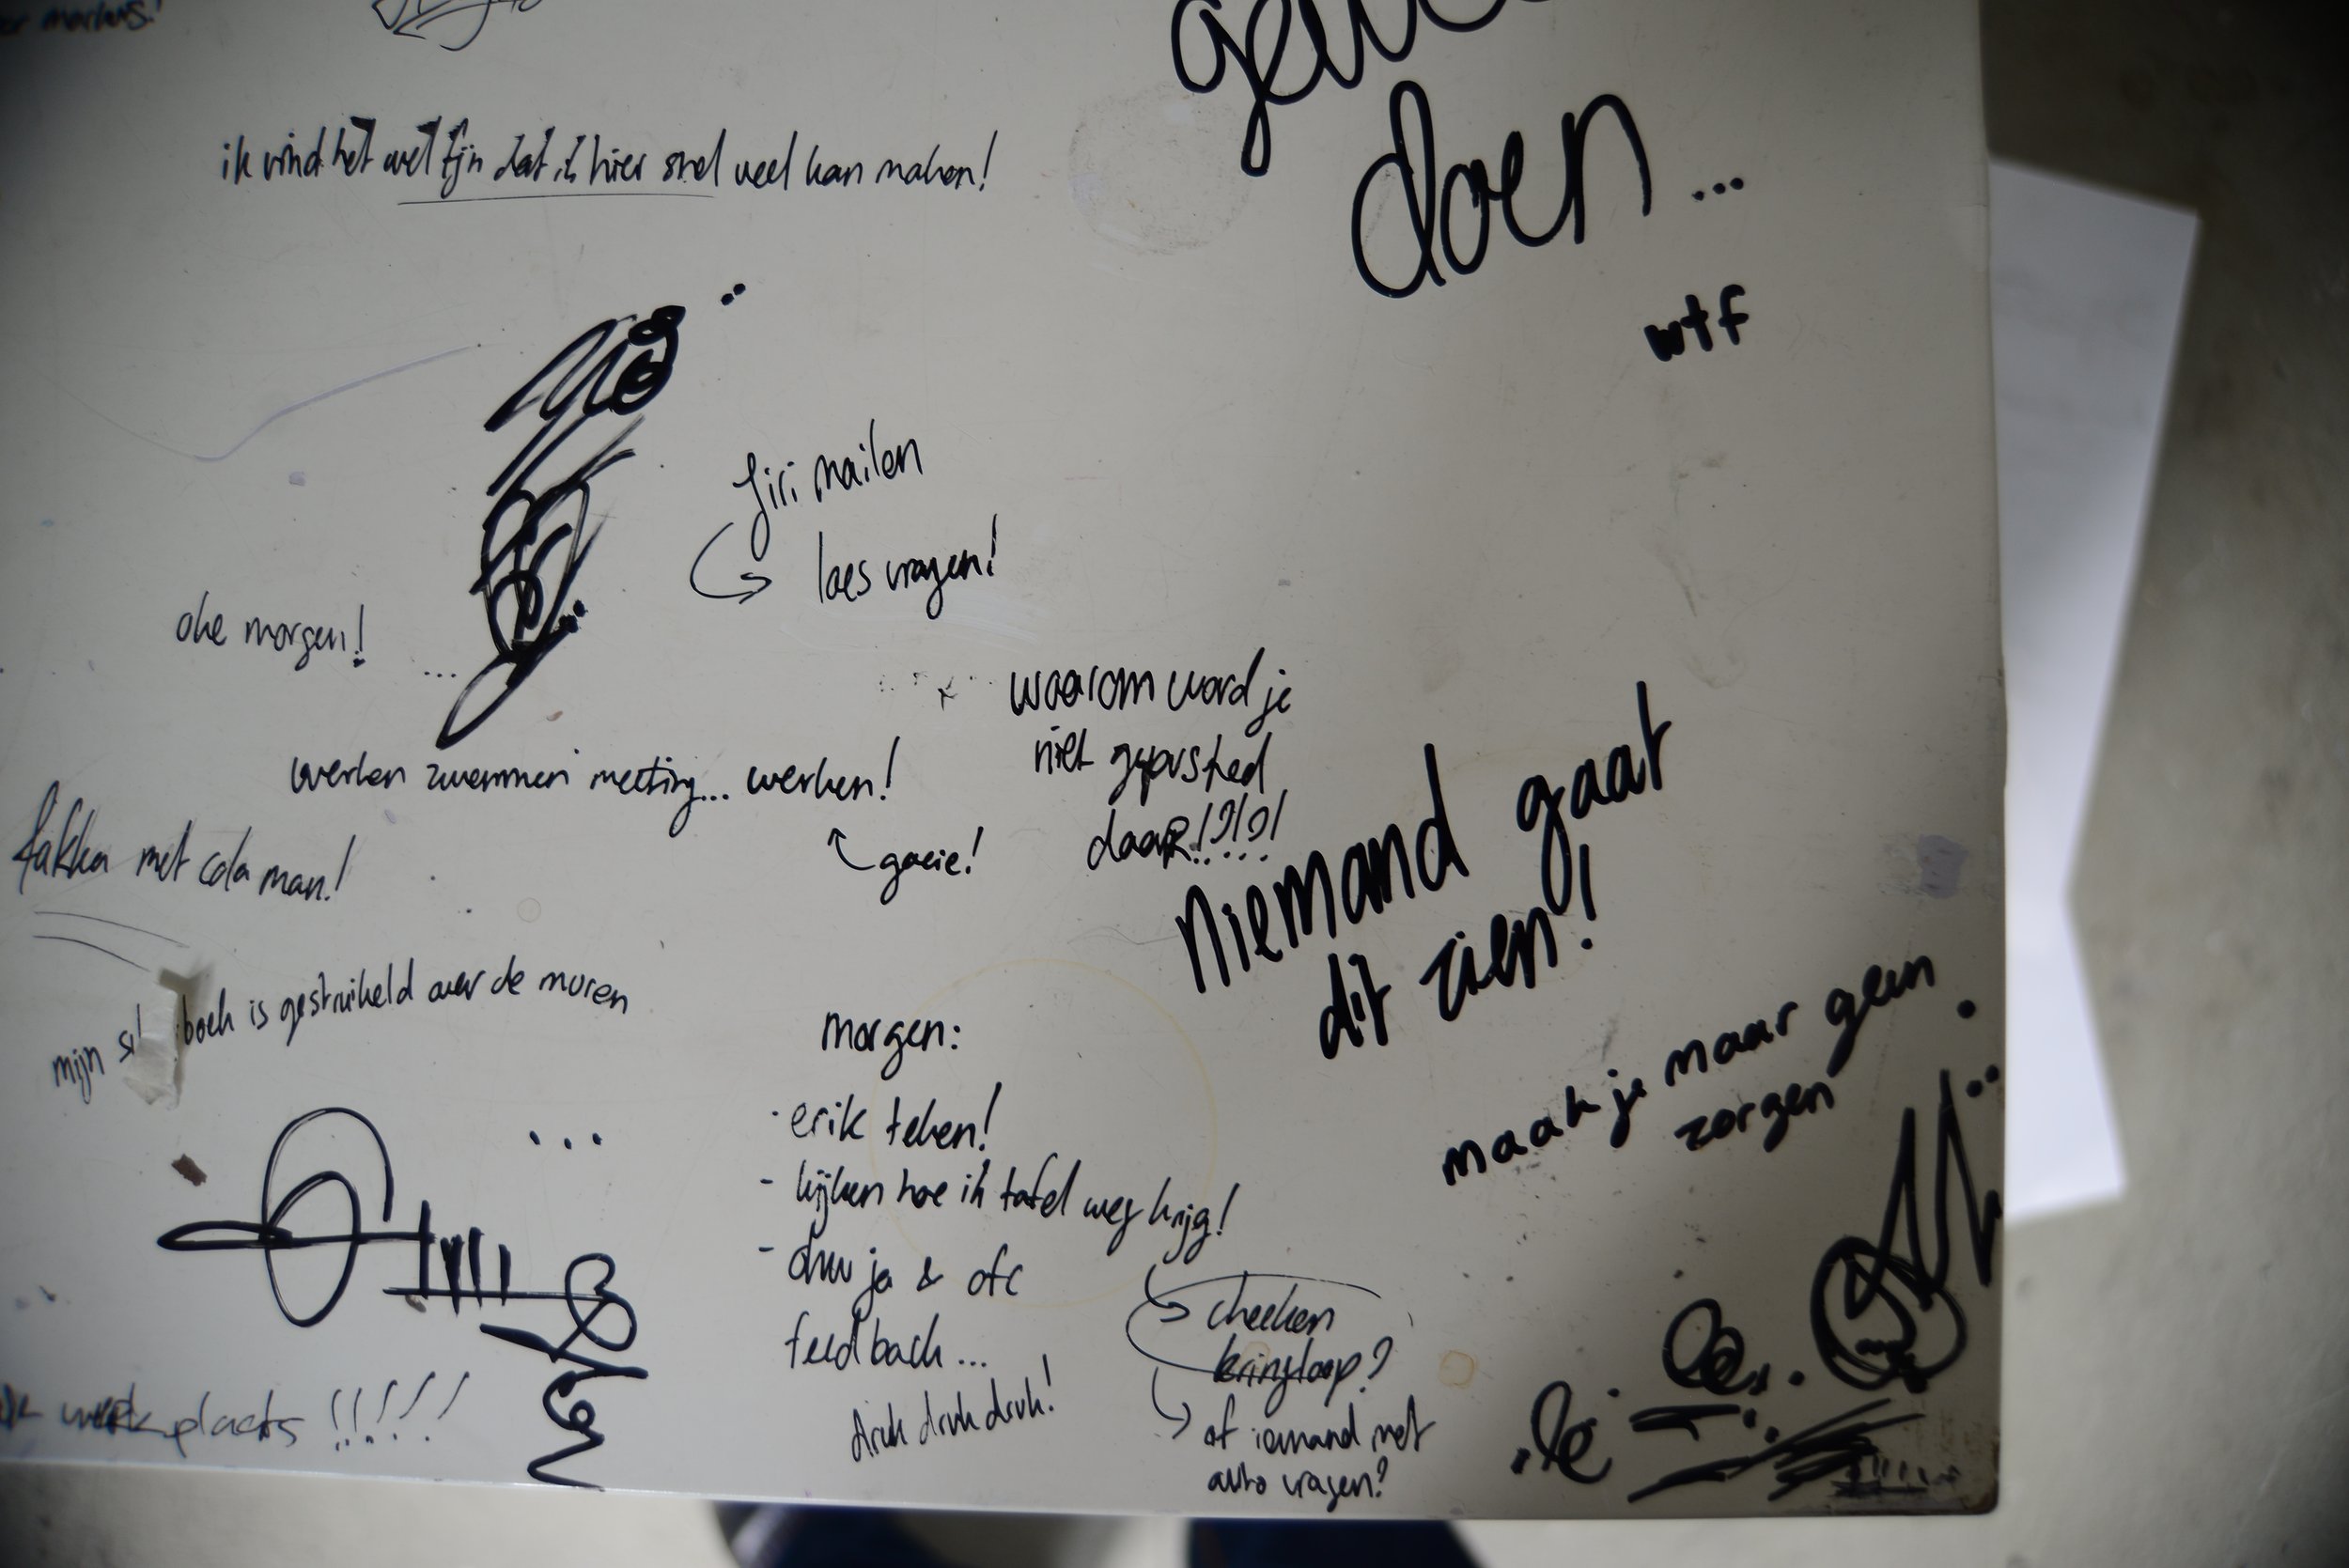 markers!
doen...
wtf
ik vind het wel fijn dat ik hier snel veel kan maken!
Jiri mailen
loes vragen!
oke morgen!
waarom word je
niet gepushed
daaR!?!?!
werken zwemmen meeting... werken!
goeie!
fakka met cola man!
Niemand gaat
dit zien!
mijn boek is gestruikeld over de muren
maak je maar geen
zorgen
morgen:
- erik teken!
- kijken hoe ik tafel weg krijg!
- ja & ofc
feedback...
druk druk druk!
checken
kringloop?
of iemand met
auto vragen?
werkplaats !!!!!